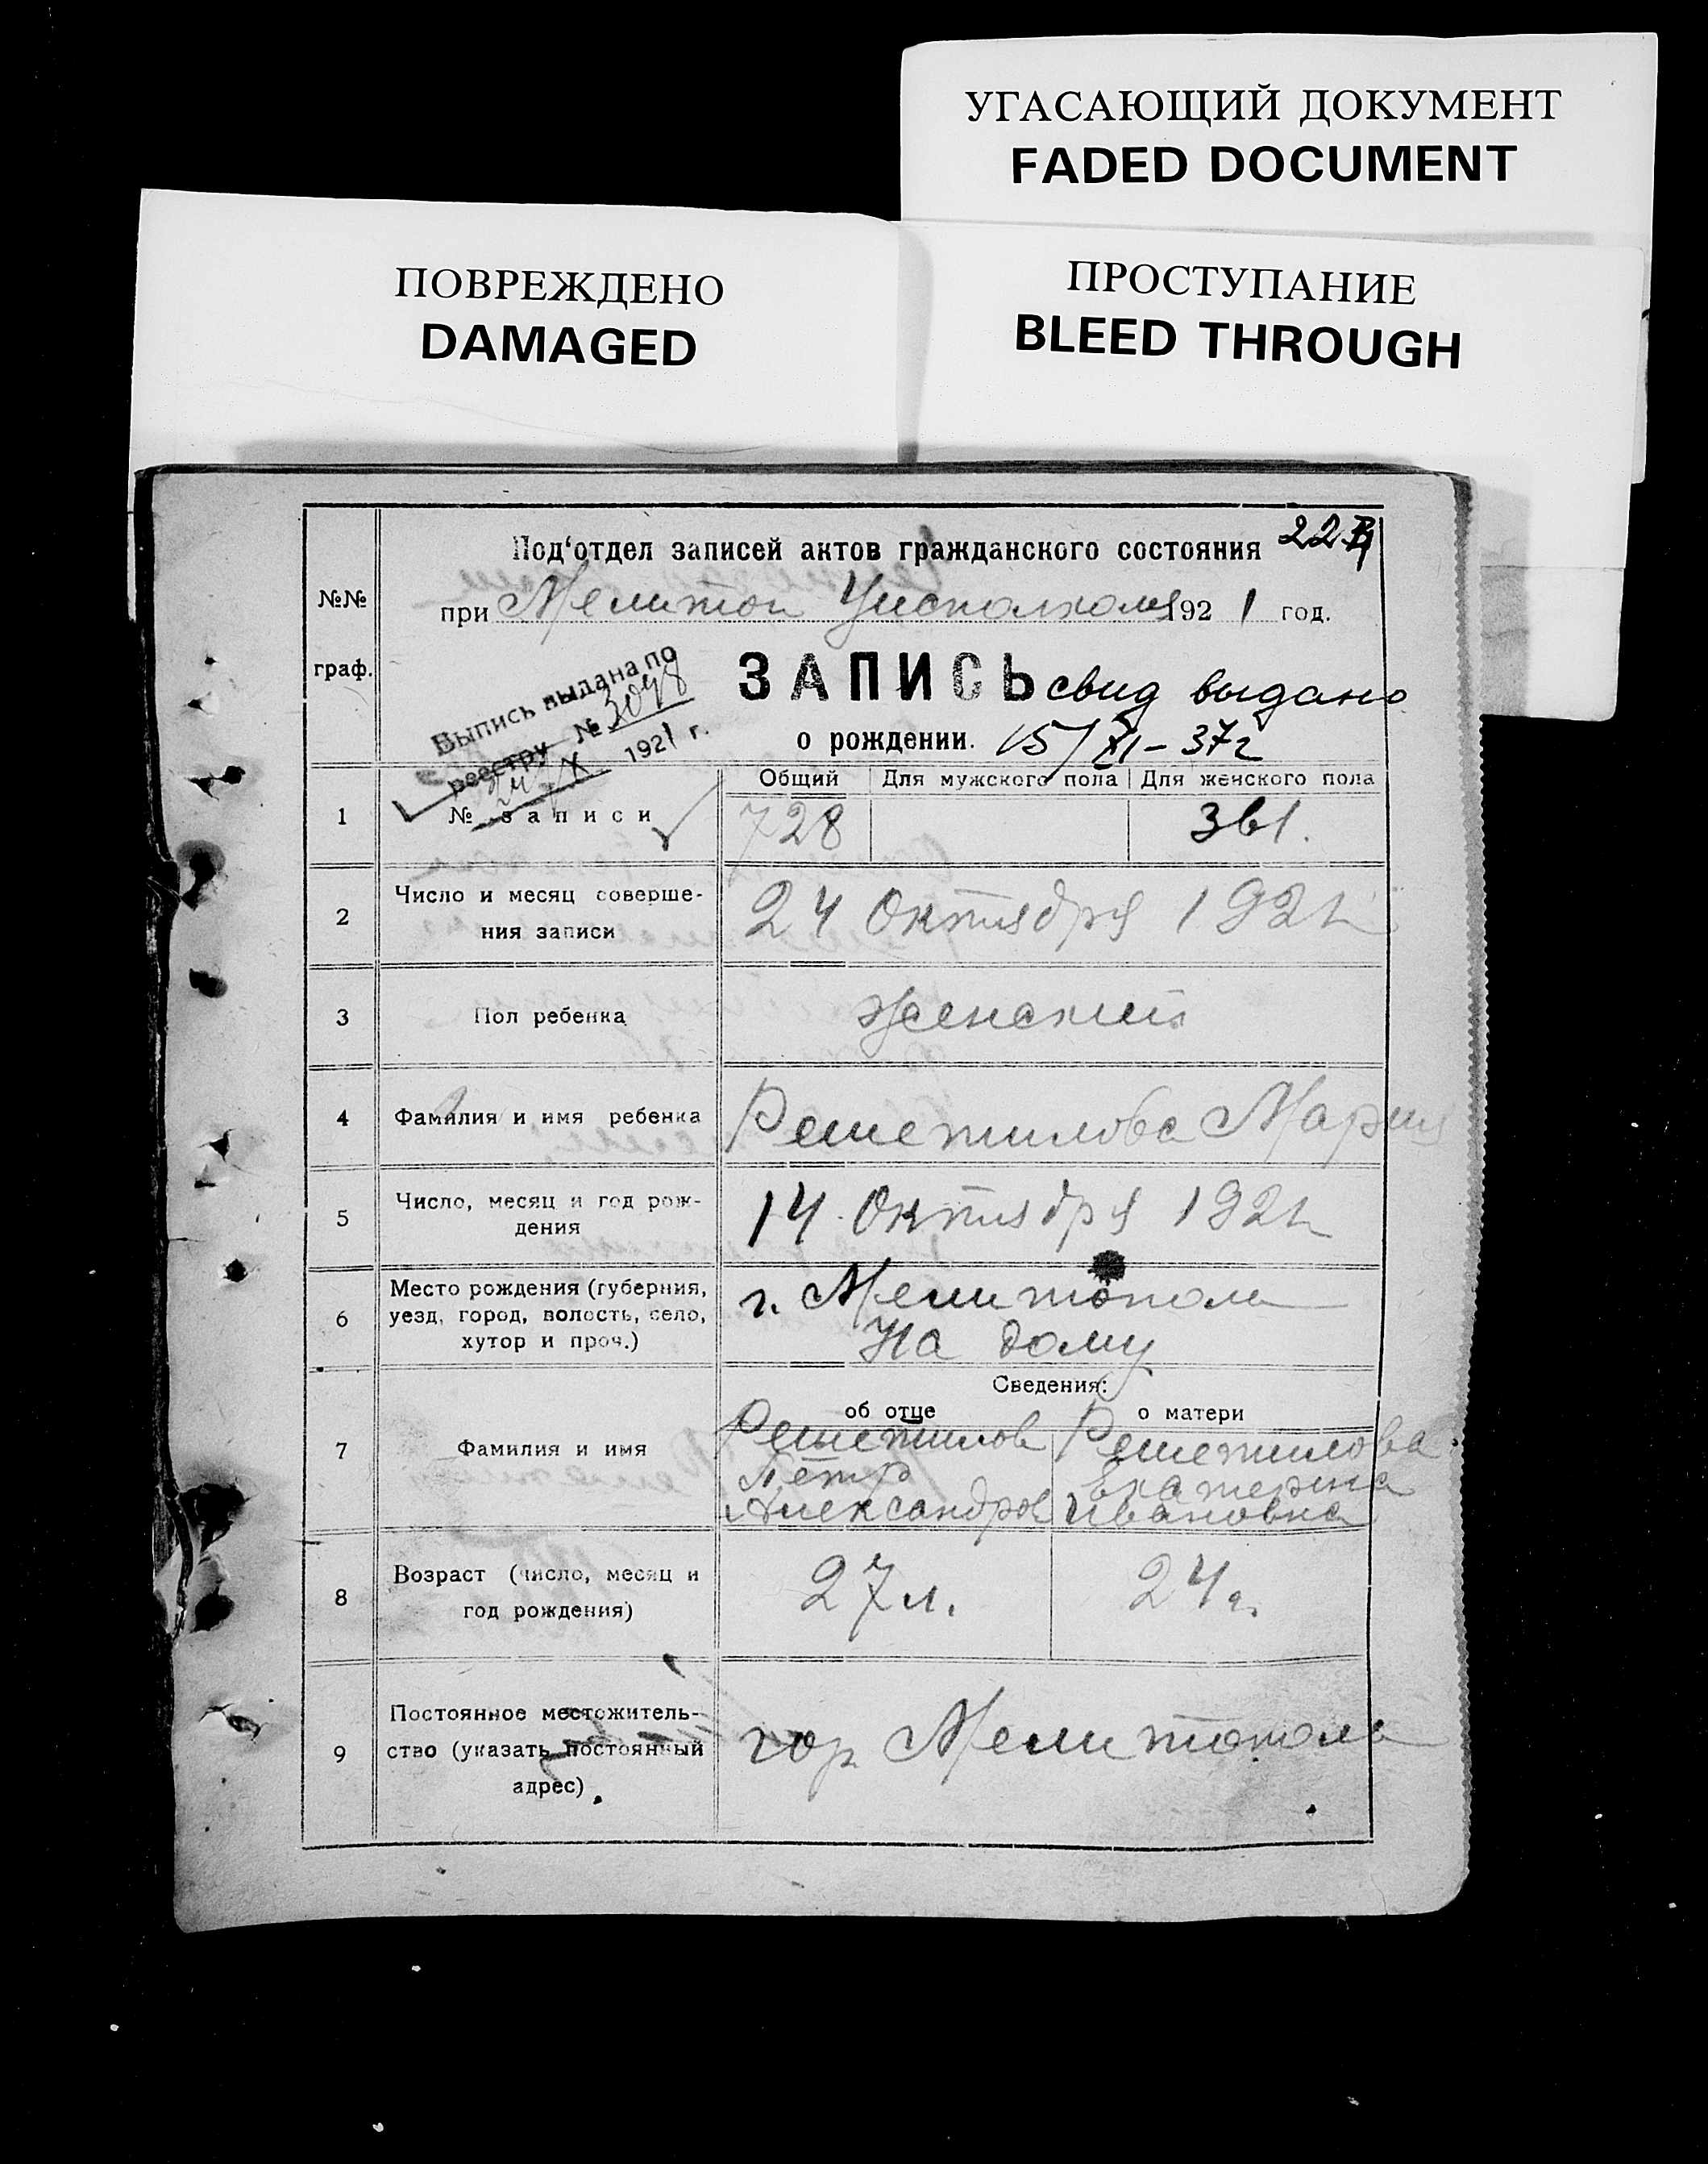 УГАСАЮЩИЙ ДОКУМЕНТ
FADED DOCUMENT
ПОВРЕЖДЕНО
DAMAGED
ПРОСТУПАНИЕ
BLEED THROUGH
Под'отдел записей актов гражданского состояния
№№
граф.
при Мелитоп Уисполкоме 1921 год.
Выпись выдана по
реестру № 3098
24/X 1921 г.
ЗАПИСЬ свид выдано
о рождении. 15/XI-37г
Общий Для мужского пола Для женского пола
1 № записи 728 361.
2 Число и месяц соверше-
ния записи 24 Октября 1921
3 Пол ребенка женский
4 Фамилия и имя ребенка Решетилова Мария
5 Число, месяц и год рож-
дения 14 Октября 1921
6 Место рождения (губерния,
уезд, город, волость, село,
хутор и проч.) г. Мелитополь
На дому
Сведения:
об отце о матери
7 Фамилия и имя Решетилов Решетилова
Петр Екатерина
Александров Ивановна
8 Возраст (число, месяц и
год рождения) 27 л. 24 г.
9 Постоянное местожитель-
ство (указать постоянный
адрес) гор Мелитополь